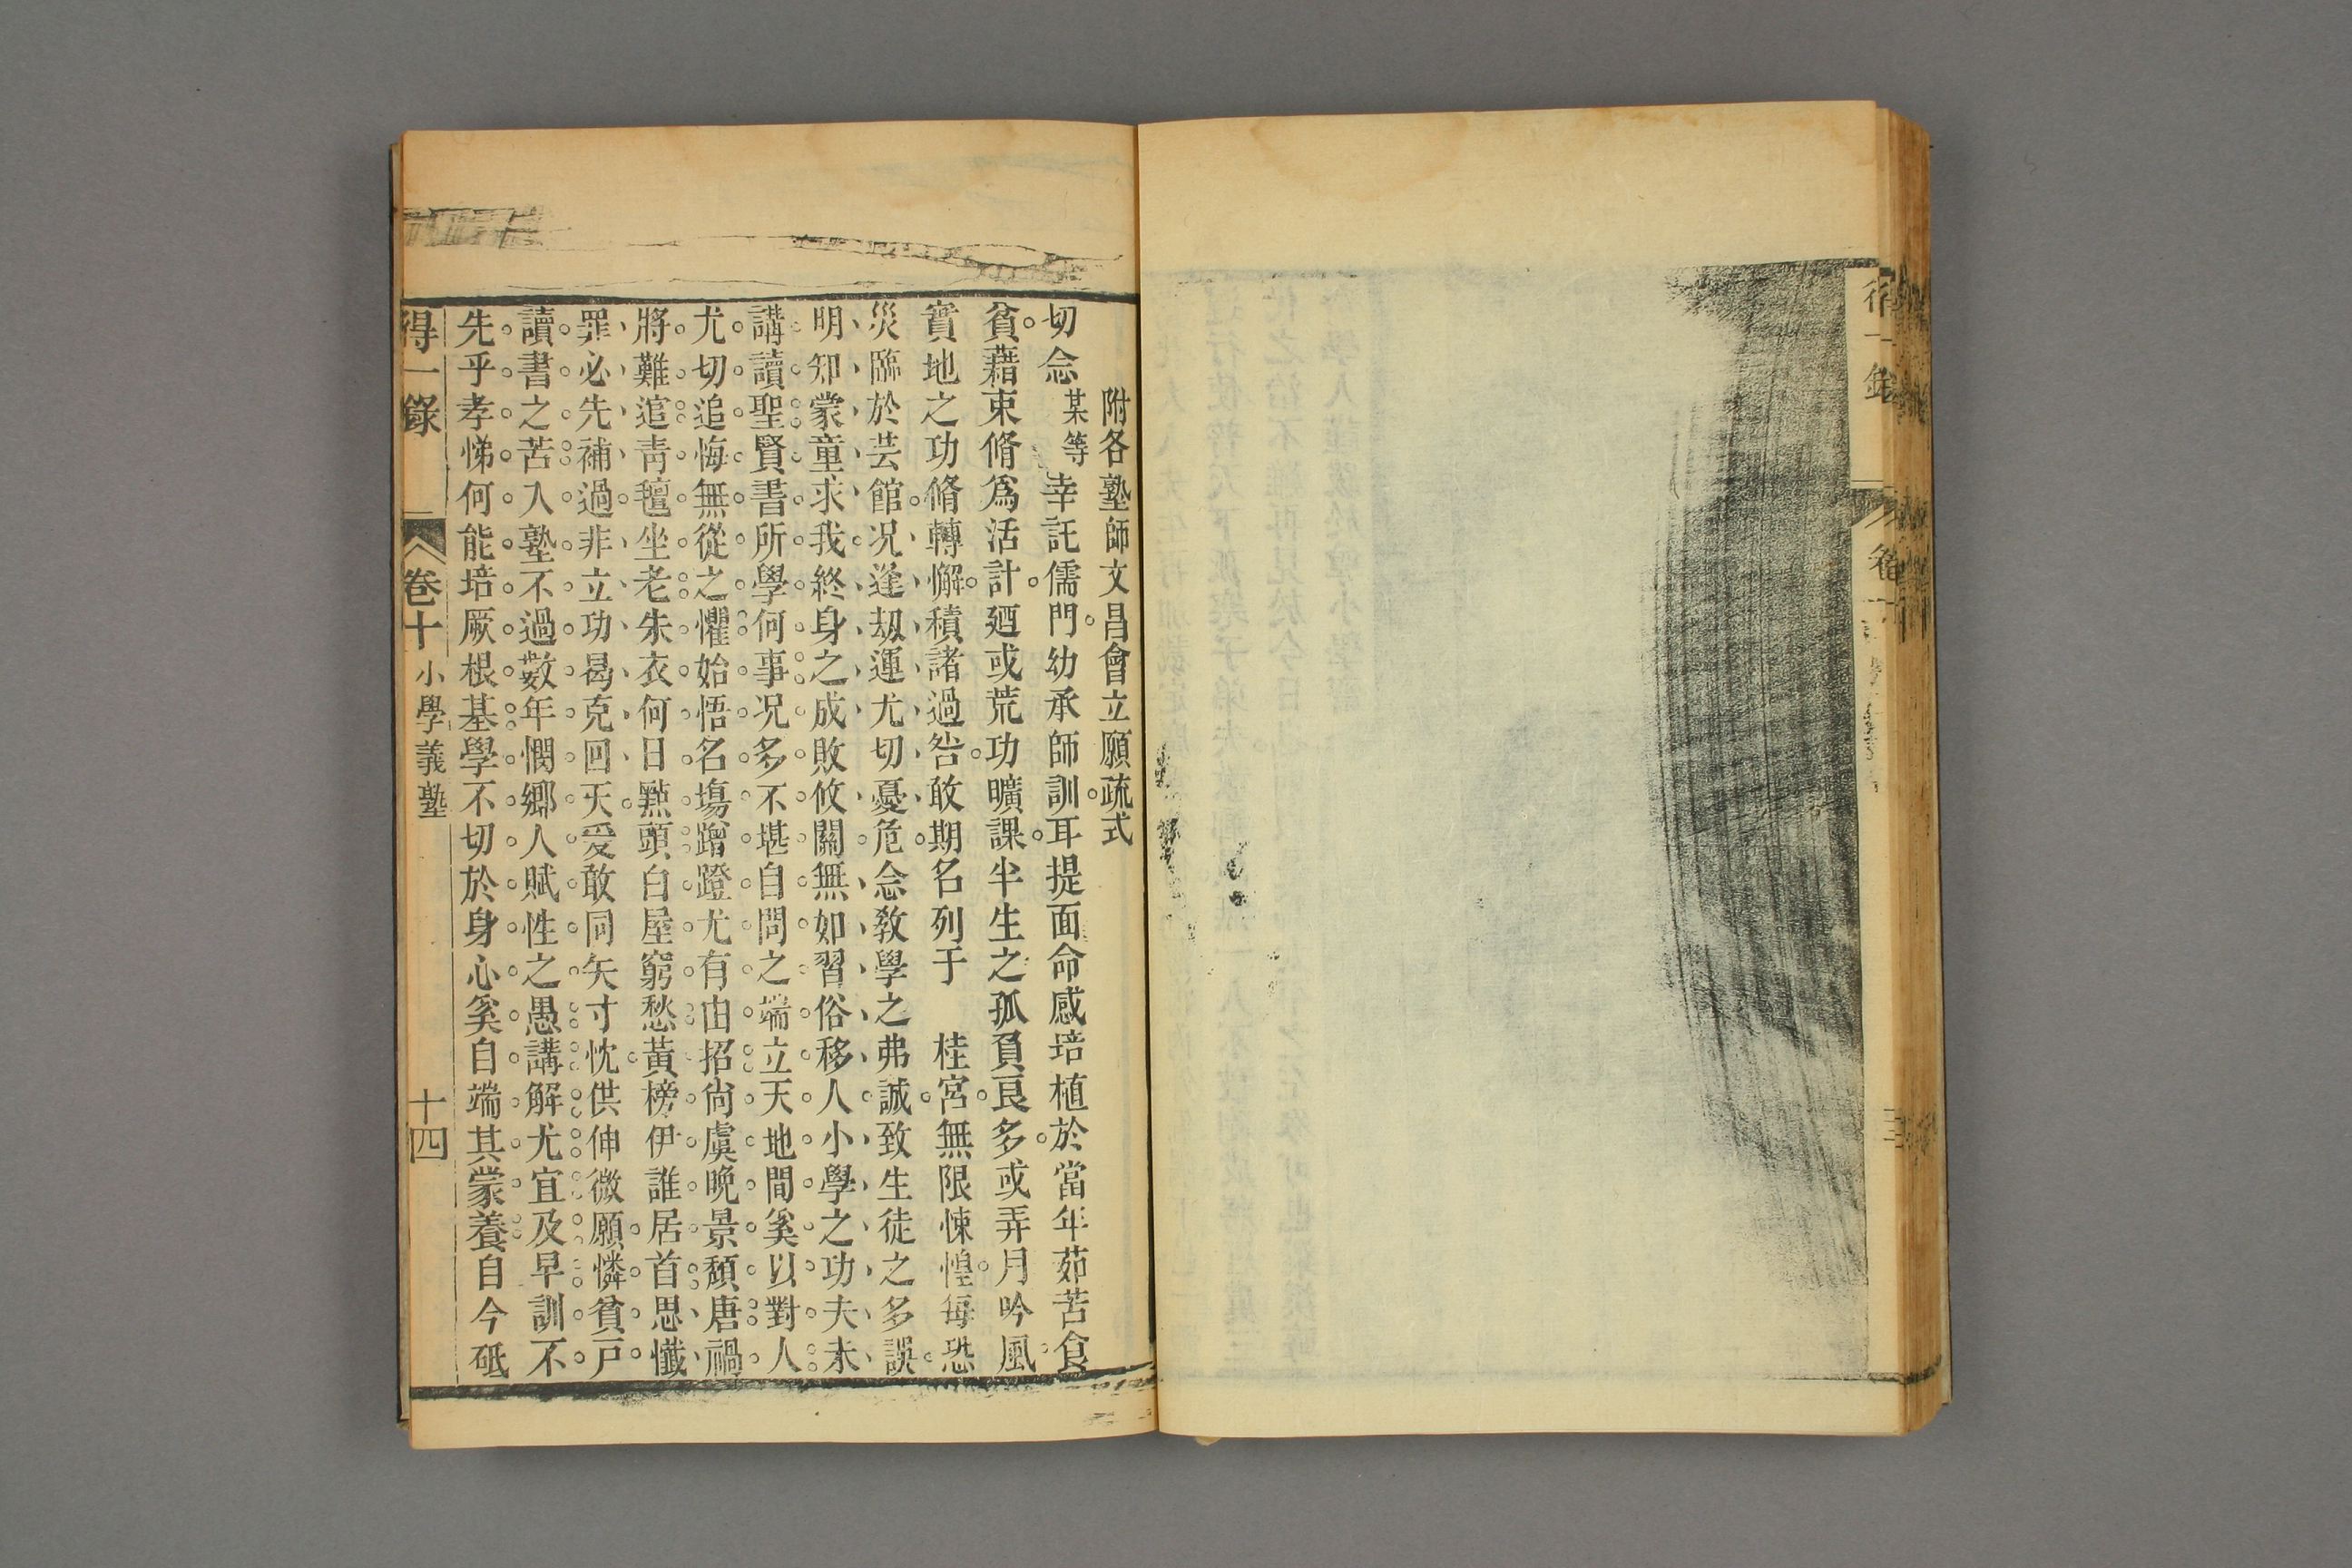 得一錄
卷十
附各塾師文昌會立願疏式
切念某等幸託儒門幼承師訓耳提面命感培植於當年茹苦食
貧藉束脩爲活計廼或荒功曠課半生之孤負良多或弄月吟風
實地之功脩轉懈積諸過咎敢期名列于　桂宮無限悚惶每恐
災臨於芸館况逢刼運尤切憂危念敎學之弗誠致生徒之多誤
明知蒙童求我終身之成敗攸關無如習俗移人小學之功夫未
講讀聖賢書所學何事况多不堪自問之端立天地間奚以對人
尤切追悔無從之懼始悟名塲蹭蹬尤有由招尙虞晚景頹唐禍
將難逭靑氊坐老朱衣何日㸃頭白屋窮愁黃榜伊誰居首思懺
罪必先補過非立功曷克回天爰敢同矢寸忱供伸微願憐貧戶
讀書之苦入塾不過數年憫鄉人賦性之愚講解尤宜及早訓不
先乎孝悌何能培厥根基學不切於身心奚自端其蒙養自今砥
得一錄　卷十　小學義塾　十四